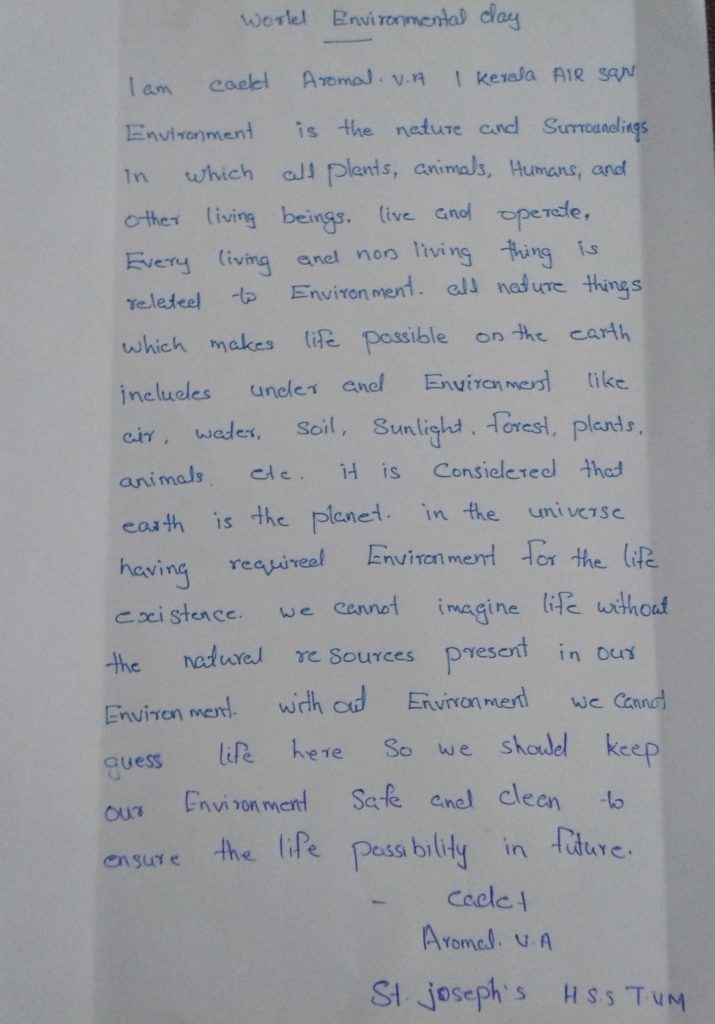 World Environmental day
I am cadet Aromal. V.A 1 Kerala AIR SQN
Environment is the nature and Surroundings
in which all plants, animals, Humans, and
other living beings. live and operate.
Every living and non living thing is
related to Environment. all nature things
which makes life possible on the earth
includes under and Environment like
air, water, soil, Sunlight, forest, plants,
animals etc. it is Considered that
earth is the planet. in the universe
having required Environment for the life
existence. we cannot imagine life without
the natural resources present in our
Environment. with out Environment we Cannot
guess life here So we should keep
our Environment Safe and clean to
ensure the life possibility in future.
- Cadet
Aromal. V.A
St. joseph's H S.S T.VM